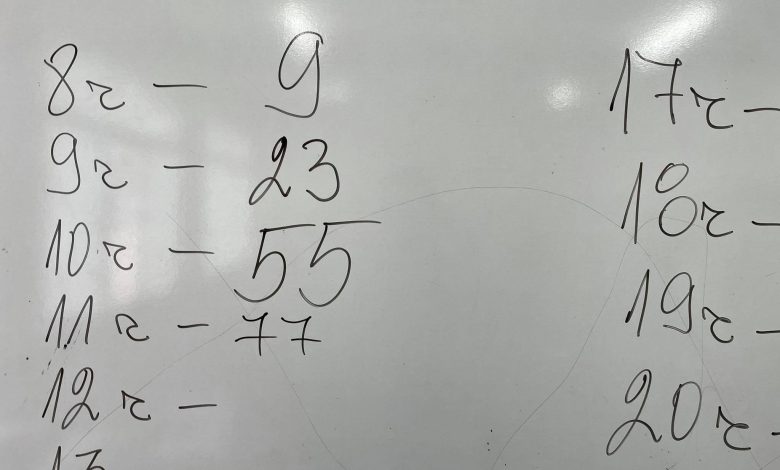 8г - 9
9г - 23
10г - 55
11г - 77
12г -
13
17г -
18г -
19г -
20г -